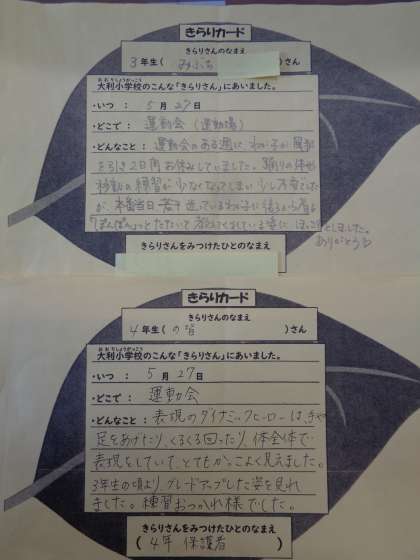 きらりカード
きらりさんのなまえ
3年生( )さん
おおりしょうがっこう
大利小学校のこんな「きらりさん」にあいました。
・いつ : 5月27日
・どこで : 運動会(運動場)
・どんなこと: 運動会のある週に わが子が風邪
を引き2日間お休みしていました。踊りの体形
移動の練習が少なくなってしまい少し不安でした
が、本番当日、若干迷っているわが子に後ろから肩を
「ぽんぽん」っとたたいて 教えてくれている姿に ほっこりしました。
ありがとう
きらりさんをみつけたひとのなまえ
きらりカード
きらりさんのなまえ
4年生(の皆)さん
おおりしょうがっこう
大利小学校のこんな「きらりさん」にあいました。
・いつ : 5月27日
・どこで : 運動会
・どんなこと: 表現のダイナミックヒーローは、
足をあげたり、くるくる回ったり 体全体で
表現をしていて とてもかっこよく見えました。
3年生の頃より グレードアップした姿を見れ
ました。練習おつかれ様でした。
きらりさんをみつけたひとのなまえ
(4年 保護者)